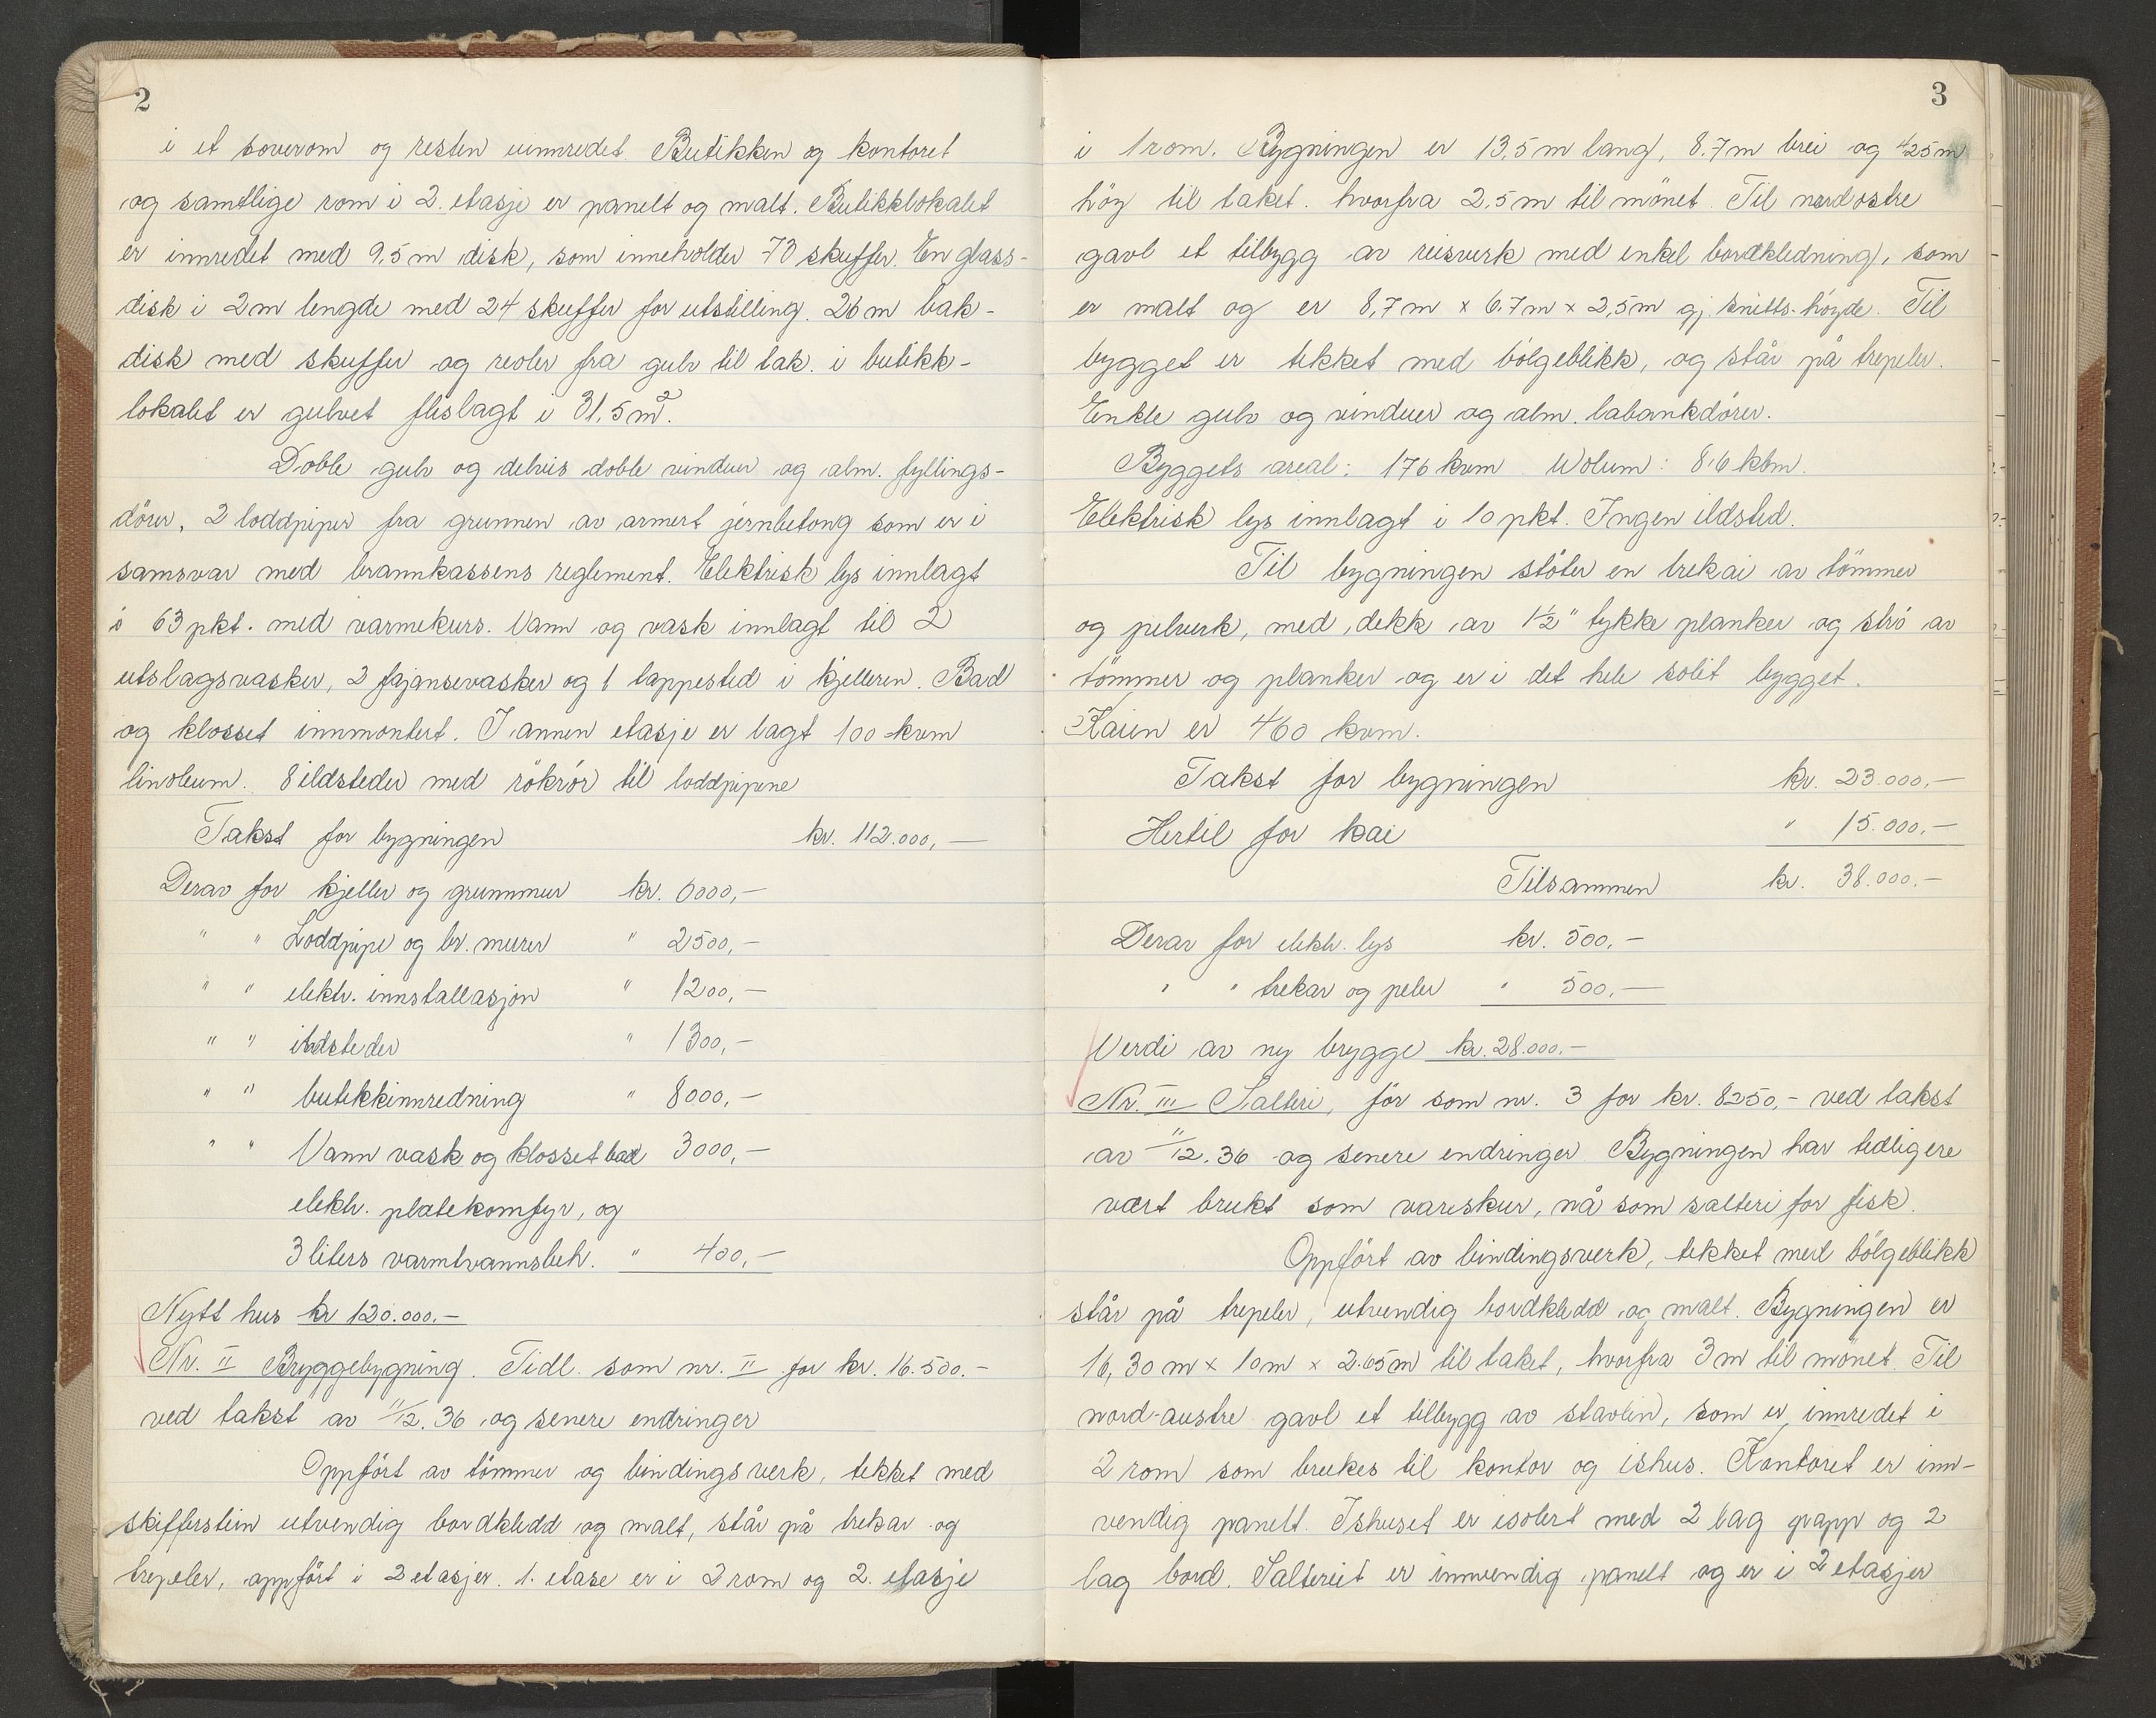 2
i et soverom og resten uinnredet. Butikken og kontoret
og samtlige rom i 2. etasje er panelt og malt. Butikklokalet
er innredet med 9,5 m disk, som inneholder 73 skuffer. En glass-
disk i 2 m lengde med 24 skuffer for utstilling. 26 m bak-
disk med skuffer og reoler fra gulv til tak. i butikk-
lokalet er gulvet flislagt i 31,5 m².
Doble gulv og delvis doble vinduer og alm. fyllings-
dörer, 2 loddpiper fra grunnen av armert jernbetong som er i
samsvar med brannkassens reglement. Elektrisk lys innlagt
i 63 pkt. med varmekurs. Vann og vask innlagt til 2
utslagsvasker, 2 fajansevasker og 1 tappested i kjelleren. Bad
og klosset innmontert. I annen etasje er lagt 100 kvm
linoleum. 8 ildsteder med rökrör til loddpipene
Takst for bygningen kr. 112.000,—
Derav for kjeller og grunnmur kr. 6000,—
" " Loddpipe og br. murer " 2500,—
" " elektr. innstallasjon " 1200,—
" " ildsteder " 1300,—
" " butikkinnredning " 8000,—
" " Vann vask og klosset bad 3000,—
elektr. platekomfyr, og
3 liters varmtvannsbeh. " 400,—
Nytt hus kr 120.000.—
Nr. II Bryggebygning. Tidl. som nr. II for kr. 16.500.—
ved takst av 11/12. 36 og senere endringer
Oppfört av tömmer og bindingsverk, tekket med
skifferstein utvendig bordkledd og malt, står på trekar og
trepeler, oppfört i 2 etasjer. 1. etase er i 2 rom og 2. etasje
3
i 1 rom. Bygningen er 13,5 m lang, 8.7 m brei og 4,25 m
höy til taket. hvorfra 2,5 m til mönet. Til nordostre
gavl et tilbygg av reisverk med enkel bordkledning, som
er malt og er 8,7 m x 6.7 m x 2,5 m gj. snitts-höyde. Til
bygget er tekket med bölgeblikk, og står på trepeler.
Enkle gulv og vinduer og alm. labankdörer.
Byggets areal: 176 kvm Wolum: 816 kbm.
Elektrisk lys innlagt i 10 pkt. Ingen ildsted.
Til bygningen stöter en trekai av tömmer
og pelverk, med dekk av 1½" tykke planker og strö av
tömmer og planker og er i det hele solit bygget.
Kaien er 460 kvm.
Takst for bygningen kr. 23.000,—
Hertil for kai " 15.000,—
Tilsammen kr. 38.000.—
Derav for elektr. lys kr. 500,—
" " trekar og peler " 500,—
Verdi av ny brygge kr. 28.000.—
Nr. III Salteri, för som nr. 3 for kr. 8250,— ved takst
av 11/12. 36 og senere endringer Bygningen har tidligere
vært brukt som vareskur, nå som salteri for fisk.
Oppfört av bindingsverk, tekket med bölgeblikk
står på trepeler, utvendig bordkledd og malt. Bygningen er
16,30 m x 10 m x 2.65 m til taket, hvorfra 3 m til mönet. Til
nord-austre gavl et tilbygg av stavlin, som er innredet i
2 rom som brukes til kontor og ishus. Kontoret er inn-
vendig panelt. Ishuset er isolert med 2 lag papp og 2
lag bord. Salteriet er innvendig panelt og er i 2 etasjer